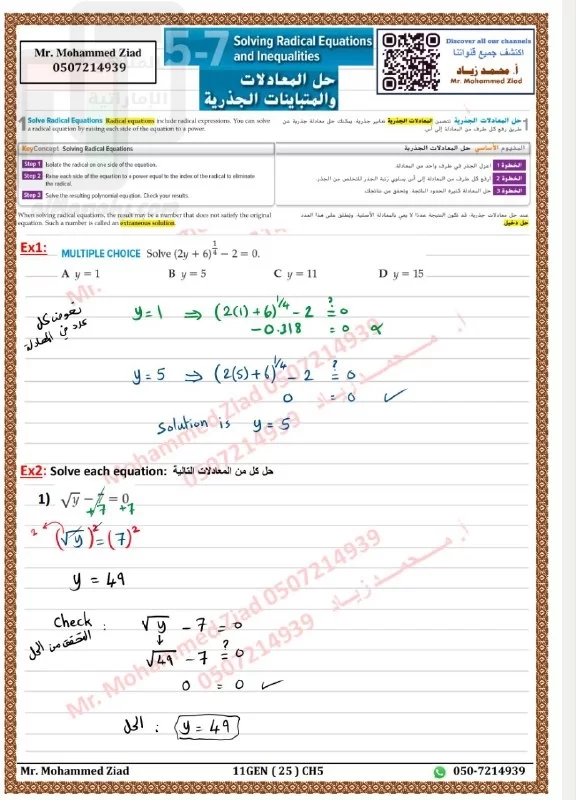 Mr. Mohammed Ziad
0507214939
5-7
Solving Radical Equations
and Inequalities
حل المعادلات
والمتباينات الجذرية
Discover all our channels
اكتشف جميع قنواتنا
أ. محمد زياد
Mr. Mohammed Ziad
1 Solve Radical Equations Radical equations include radical expressions. You can solve
a radical equation by raising each side of the equation to a power.
1 حل المعادلات الجذرية تتضمن المعادلات الجذرية تعابير جذرية. يمكنك حل معادلة جذرية عن
طريق رفع كل طرف من المعادلة إلى أس.
KeyConcept Solving Radical Equations
Step 1 Isolate the radical on one side of the equation.
Step 2 Raise each side of the equation to a power equal to the index of the radical to eliminate
the radical.
Step 3 Solve the resulting polynomial equation. Check your results.
المفهوم الأساسي حل المعادلات الجذرية
الخطوة 1 اعزل الجذر في طرف واحد من المعادلة.
الخطوة 2 ارفع كل طرف من المعادلة إلى أس يساوي رتبة الجذر للتخلص من الجذر.
الخطوة 3 حل المعادلة كثيرة الحدود الناتجة. وتحقق من نتائجك.
When solving radical equations, the result may be a number that does not satisfy the original
equation. Such a number is called an extraneous solution.
عند حل معادلات جذرية، قد تكون النتيجة عددًا لا يفي بالمعادلة الأصلية. ويطلق على هذا العدد
حل دخيل
Ex1:
MULTIPLE CHOICE Solve (2y + 6)^{1/4} − 2 = 0.
A y = 1 B y = 5 C y = 11 D y = 15
نعوض كل
عدد في المعادلة
y = 1 ⇒ (2(1) + 6)^{1/4} - 2 ≟ 0
-0.318 = 0 ×
y = 5 ⇒ (2(5) + 6)^{1/4} - 2 ≟ 0
0 = 0 ✓
Solution is y = 5
Ex2: Solve each equation: حل كل من المعادلات التالية
1) √y − 7 = 0
+7 +7
2 (√y)² = (7)²
y = 49
Check :
التحقق من الحل
√y - 7 = 0
↓
√49 - 7 ≟ 0
0 = 0 ✓
الحل : y = 49
Mr. Mohammed Ziad 0507214939
أ. محمد زياد 0507214939
Mr. Mohammed Ziad 0507214939
أ. محمد زياد 0507214939
Mr. Mohammed Ziad
11GEN ( 25 ) CH5
050-7214939